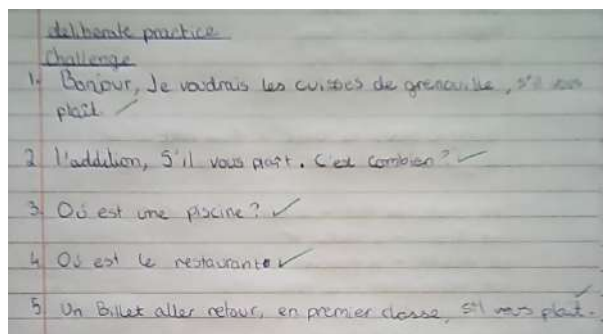 deliberate practice
Challenge
1. Bonjour, Je voudrais les cuisses de grenouille, s'il vous
plaît.
2 l'addition, S'il vous plaît. C'est combien?
3. Où est une piscine?
4 Où est le restaurant
5 Un Billet aller retour, en premier classe, s'il vous plaît.